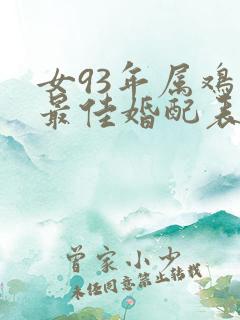 女93年属鸡
最佳婚配表
曾家小少
未经同意禁止转载